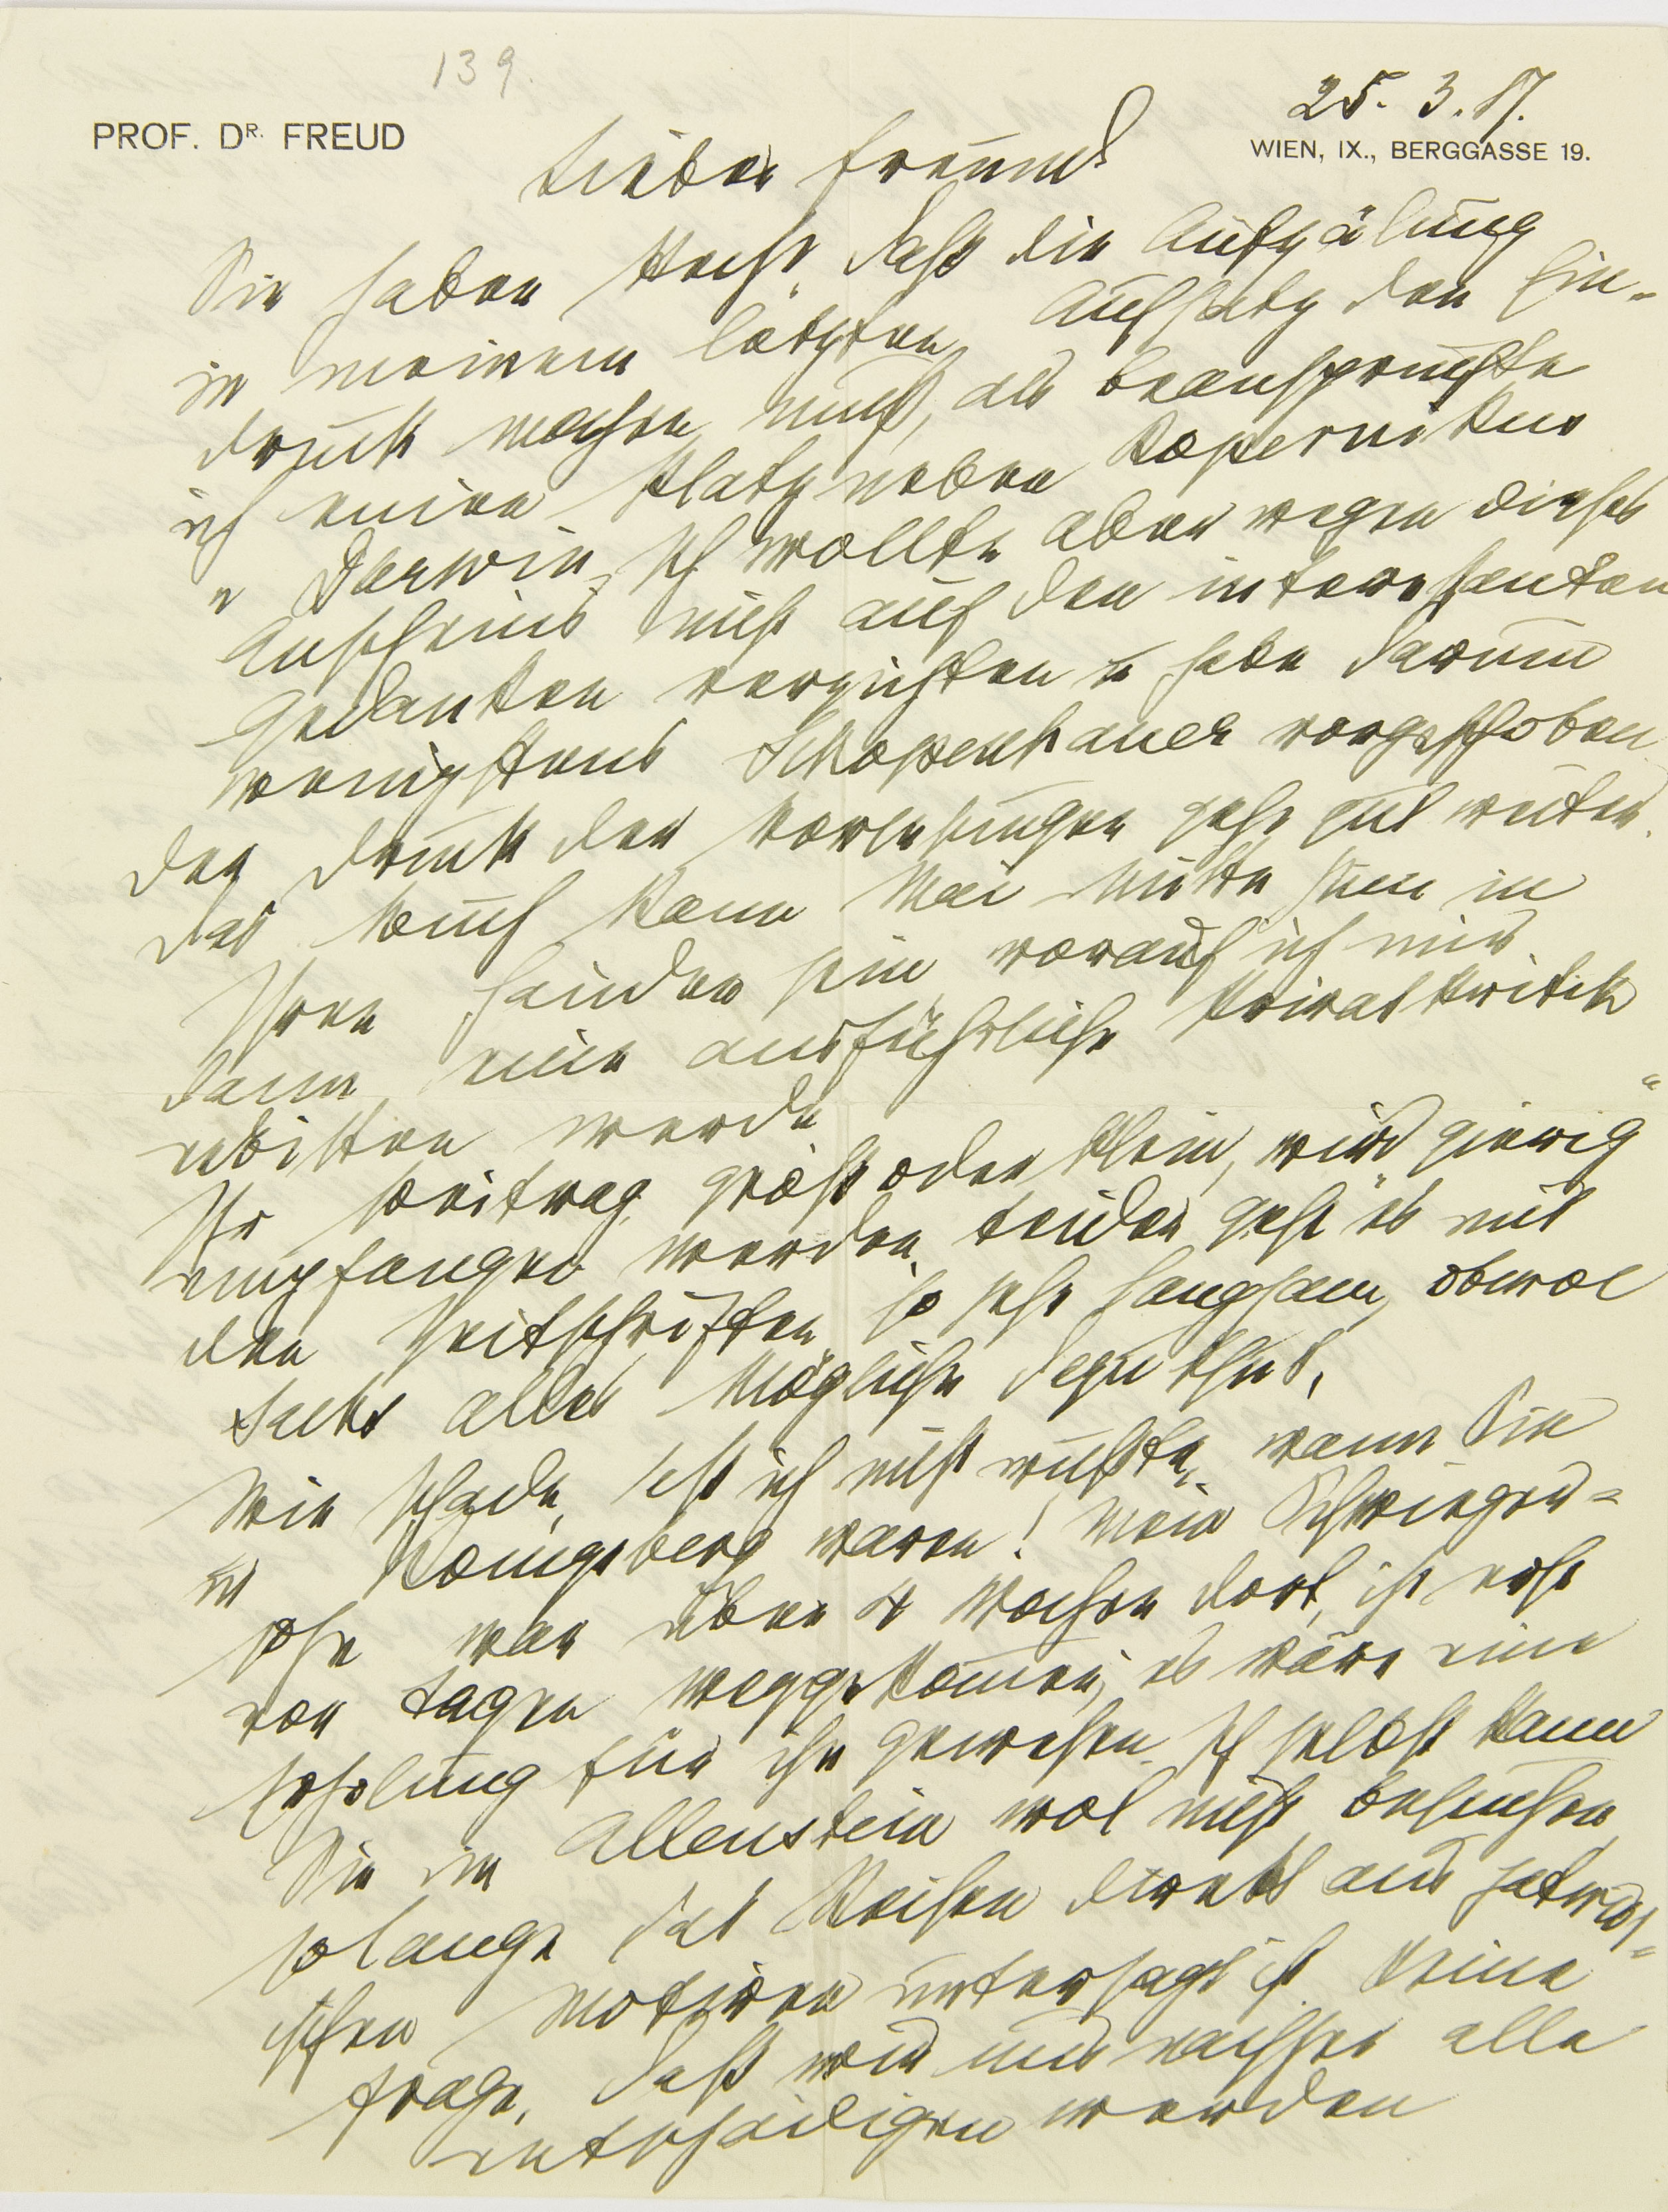 139.
25. 3. 17.
PROF. DR. FREUD
WIEN, IX., BERGGASSE 19.
Lieber Freund
Sie haben Recht, daß die Aufzälung
in meinem letzten Aufsatz den Ein-
druck machen muß, als beanspruchte
ich einen Platz neben Kopernikus
u Darwin. Ich wollte aber wegen dieses
Anscheins nicht auf den interessanten
Gedanken verzichten u habe darum
wenigstens Schopenhauer vorgeschoben.
Der Druck der Vorlesungen geht gut weiter.
Das Buch kann Mai Mitte schon in
Ihren Händen sein, worauf ich mir
dann eine ausführliche Privatkritik
erbitten werde.
Ihr Beitrag, groß oder klein, wird „gierig“
empfangen werden. Leider geht es mit
den Zeitschriften so sehr langsam, obwol
Sachs alles Mögliche dazu thut.
Wie schade, daß ich nicht wußte, wann Sie
in Königsberg waren! Mein Schwieger-
sohn war über 4 Wochen dort, ist erst
vor Tagen weggekommen; es wäre eine
Erholung für ihn gewesen. Ich selbst kann
Sie in Allenstein wol nicht besuchen,
solange das Reisen direkt aus patrioti-
schen Motiven untersagt ist. Keine
Frage, daß wir uns nachher alle
entschädigen werden